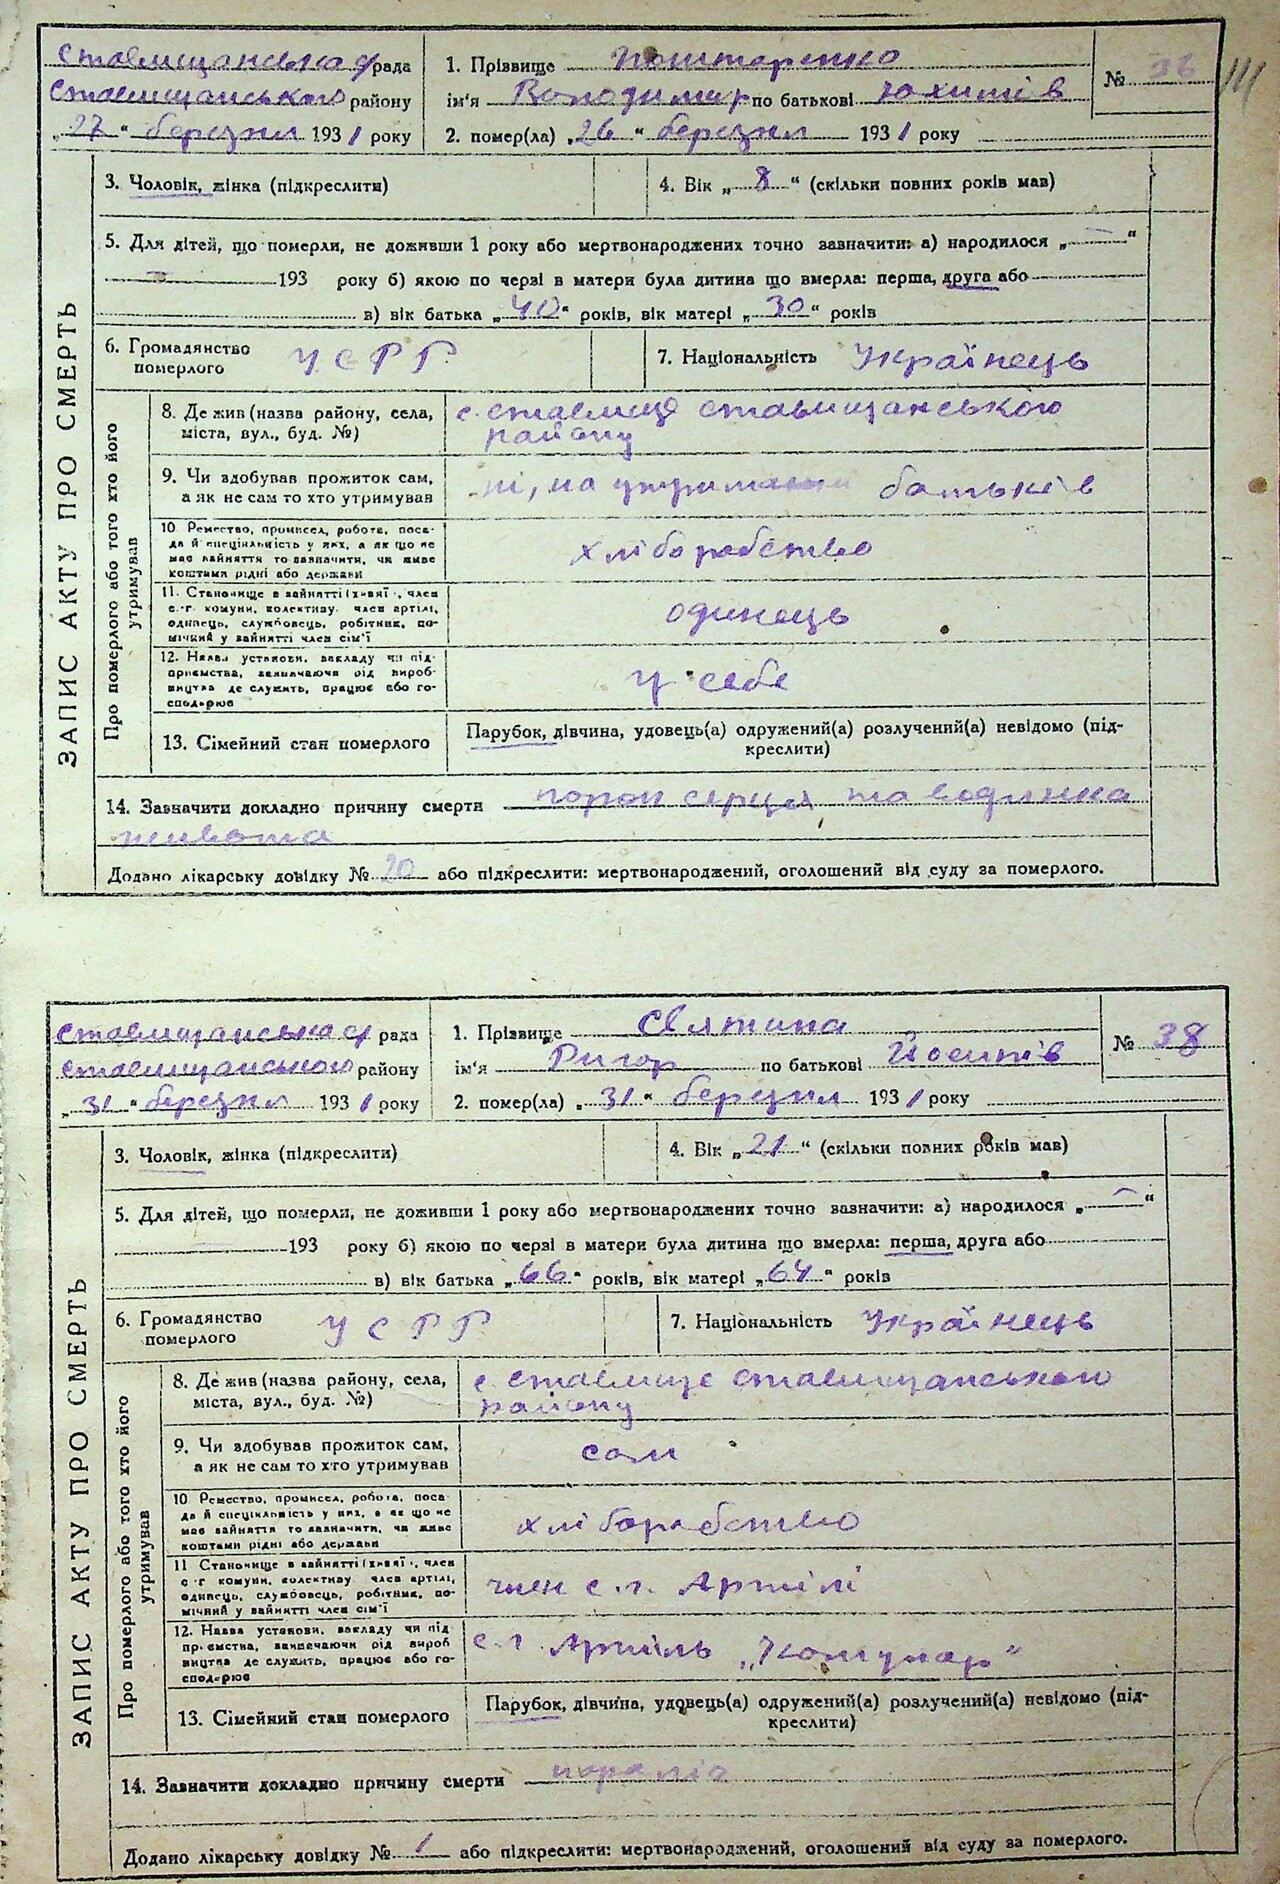 Ставищанська с/рада
Ставищанського району
„27“ березня 1931 року
1. Прізвище Поштаренко
ім'я Володимир по батькові Юхимів
2. помер(ла) „26“ березня 1931 року
№ 36
3. Чоловік, жінка (підкреслити)
4. Вік „8“ (скільки повних років мав)
5. Для дітей, що померли, не доживши 1 року або мертвонароджених точно зазначити: а) народилося „—“
— 193 року б) якою по черзі в матери була дитина що вмерла: перша, друга або
в) вік батька „40“ років, вік матері „30“ років
6. Громадянство
померлого
УСРР
7. Національність Українець
ЗАПИС АКТУ ПРО СМЕРТЬ
Про померлого або того хто його
утримував
8. Де жив (назва району, села,
міста, вул., буд. №)
с. Ставище Ставищанського
району
9. Чи здобував прожиток сам,
а як не сам то хто утримував
ні, на утриманні батьків
10 Ремество, промисел, робота, поса-
да й спеціяльність у них, а як що не
має зайняття то зазначити, чи живе
коштами рідні або держави
хліборобство
11. Становище в зайнятті (хазяї, член
с.-г комуни, колективу член артілі,
одинець, службовець, робітник, по-
мічний у зайнятті член сім'ї
одинець
12. Назва установи, закладу чи під-
приємства, зазначаючи рід вироб-
ництва де служить, працює або го-
сподарює
у себе
13. Сімейний стан померлого
Парубок, дівчина, удовець(а) одружений(а) розлучений(а) невідомо (під-
креслити)
14. Зазначити докладно причину смерти порок серця та водянка
живота
Додано лікарську довідку № 20 або підкреслити: мертвонароджений, оголошений від суду за померлого.
Ставищанська с/рада
Ставищанського району
„31“ березня 1931 року
1. Прізвище Святина
ім'я Ригор по батькові Йосипів
2. помер(ла) „31“ березня 1931 року
№ 38
3. Чоловік, жінка (підкреслити)
4. Вік „21“ (скільки повних років мав)
5. Для дітей, що померли, не доживши 1 року або мертвонароджених точно зазначити: а) народилося „—“
193 року б) якою по черзі в матери була дитина що вмерла: перша, друга або
в) вік батька „66“ років, вік матері „64“ років
6. Громадянство
померлого
УСРР
7. Національність Українець
ЗАПИС АКТУ ПРО СМЕРТЬ
Про померлого або того хто його
утримував
8. Де жив (назва району, села,
міста, вул., буд. №)
с. Ставище Ставищанського
району
9. Чи здобував прожиток сам,
а як не сам то хто утримував
сам
10 Ремество, промисел, робота, поса-
да й спеціяльність у них, а як що не
має зайняття то зазначити, чи живе
коштами рідні або держави
хліборобство
11 Становище в зайнятті (хазяї, член
с-г комуни, колективу член артілі,
одинець, службовець, робітник, по-
мічний у зайнятті член сім'ї
член с.г. Артілі
12. Назва установи, закладу чи під
приємства, зазначаючи рід вироб
ництва де служить, працює або го-
сподарює
с.г. Артіль „Комунар“
13. Сімейний стан померлого
Парубок, дівчина, удовець(а) одружений(а) розлучений(а) невідомо (під-
креслити)
14. Зазначити докладно причину смерти параліч
Додано лікарську довідку № 1 або підкреслити: мертвонароджений, оголошений від суду за померлого.